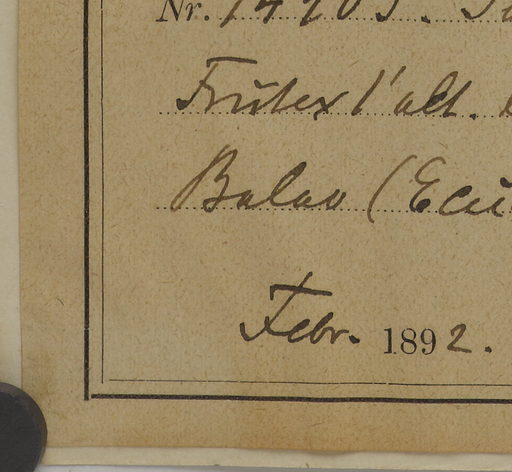 Nr.
Frutex 1' alt.
Balao (Ecu
Febr. 1892.